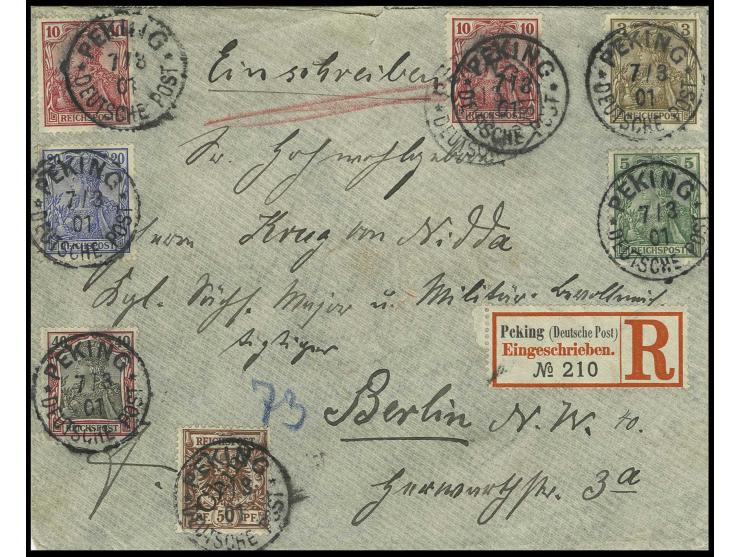 10 10
REICHSPOST
PEKING
7/3
01
DEUTSCHE POST
Einschreiben
10 10
REICHSPOST
PEKING
7/3
01
DEUTSCHE POST
3 3
REICHSPOST
PEKING
7/3
01
DEUTSCHE POST
20 20
REICHSPOST
PEKING
7/3
01
DEUTSCHE POST
5 5
REICHSPOST
PEKING
7/3
01
DEUTSCHE POST
Sr. Hochwohlgeboren
Herrn Krug von Nidda
Kgl. Sächs. Major u. Militär-Bevollmäch-
tigtiger
Peking (Deutsche Post)
Eingeschrieben.
№ 210
R
40 40
REICHSPOST
PEKING
7/3
01
DEUTSCHE POST
73
Berlin N.W. 40.
Herwarthstr. 3a
REICHSPOST
PF. 50 PF.
PEKING
01
DEUTSCHE POST